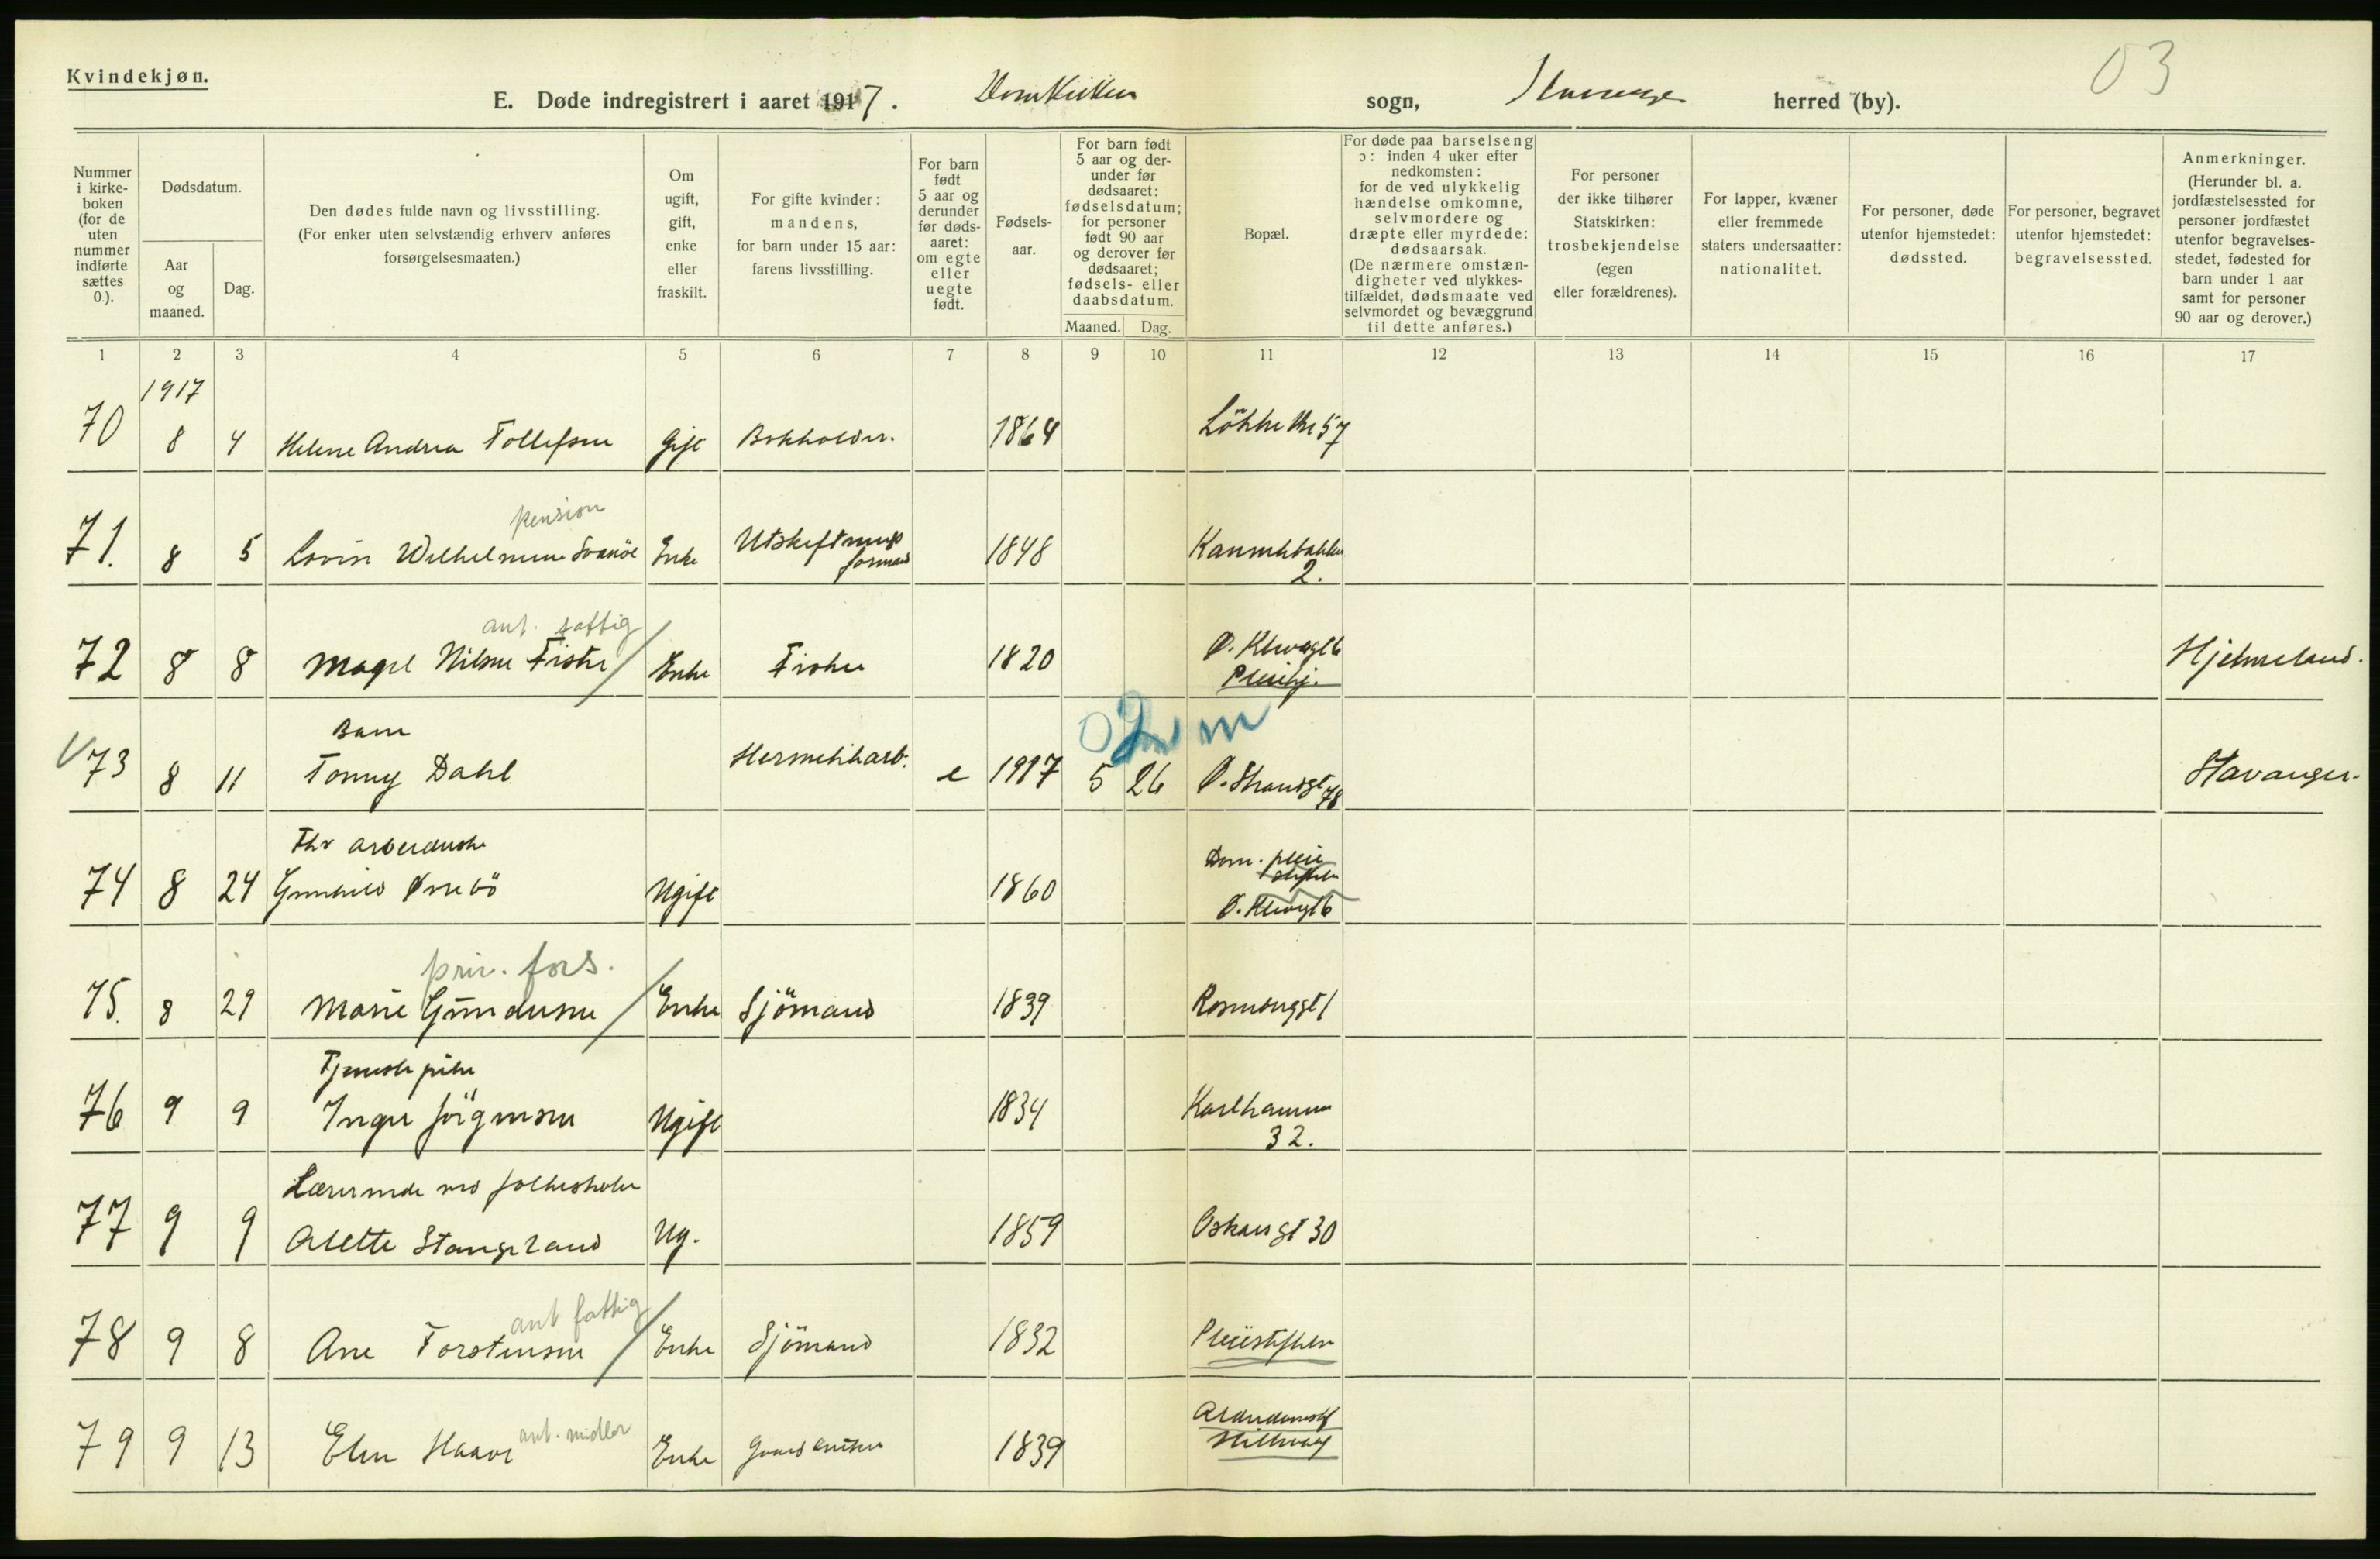 Kvindekjøn.
03
E. Døde indregistrert i aaret 1917. Domkirken sogn, Stavanger herred (by).
Nummer i kirkeboken (for de uten nummer indførte sættes 0.).
Dødsdatum.
Aar og maaned.
Dag.
Den dødes fulde navn og livsstilling.
(For enker uten selvstændig erhverv anføres forsørgelsesmaaten.)
Om ugift, gift, enke eller fraskilt.
For gifte kvinder: mandens, for barn under 15 aar: farens livsstilling.
For barn født 5 aar og derunder før dødsaaret: om egte eller uegte født.
Fødselsaar.
For barn født 5 aar og derunder før dødsaaret: fødselsdatum; for personer født 90 aar og derover før dødsaaret; fødsels- eller daabsdatum.
Maaned. Dag.
Bopæl.
For døde paa barselseng ɔ: inden 4 uker efter nedkomsten: for de ved ulykkelig hændelse omkomne, selvmordere og dræpte eller myrdede: dødsaarsak.
(De nærmere omstændigheter ved ulykkestilfældet, dødsmaate ved selvmordet og bevæggrund til dette anføres.)
For personer der ikke tilhører Statskirken: trosbekjendelse (egen eller forældrenes).
For lapper, kvæner eller fremmede staters undersaatter: nationalitet.
For personer, døde utenfor hjemstedet: dødssted.
For personer, begravet utenfor hjemstedet: begravelsessted.
Anmerkninger.
(Herunder bl. a. jordfæstelsessted for personer jordfæstet utenfor begravelsesstedet, fødested for barn under 1 aar samt for personer 90 aar og derover.)
1 2 3 4 5 6 7 8 9 10 11 12 13 14 15 16 17
1917
70 8 4 Helene Andrea Tollefsen Gift Bokholder. 1864 Løkke 57
pension
71. 8 5 Lovise Wilhelmine Svanöe Enke Utskiftnings formand 1848 2.
ant. fattig
72 8 8 Magel Nilsen Fister Enke Fisker 1820 Ø. Klevagt 6 Pleiehj. Hjelmeland.
0 2 m
Barn
73 8 11 Tonny Dahl Hermetikkarb. e 1917 5 26 Ø. Strandgt 78 Stavanger.
Fhv arbeiderske
74 8 24 Gunhild Ørrebö Ugift 1860 Dom. pleie stiftelse
Ø. Klevagt 6
priv. fors.
75. 8 29 Marie Gundersen Enke Sjömand 1839 Rosenberggt 1
Tjenestepike
76 9 9 Inger Jörgensen Ugift 1834 Karlhammer 32.
Lærerinde ved folkeskolen
77 9 9 Alette Stangeland Ug. 1859 Oskarsgt 30
ant fattig
78 9 8 Ane Torstensen Enke Sjömand 1832 Pleiestiftelsen
79 9 13 Elen Haave ant. midler Enke Gaardbruker 1839 Alderdomshj
Stillevaag